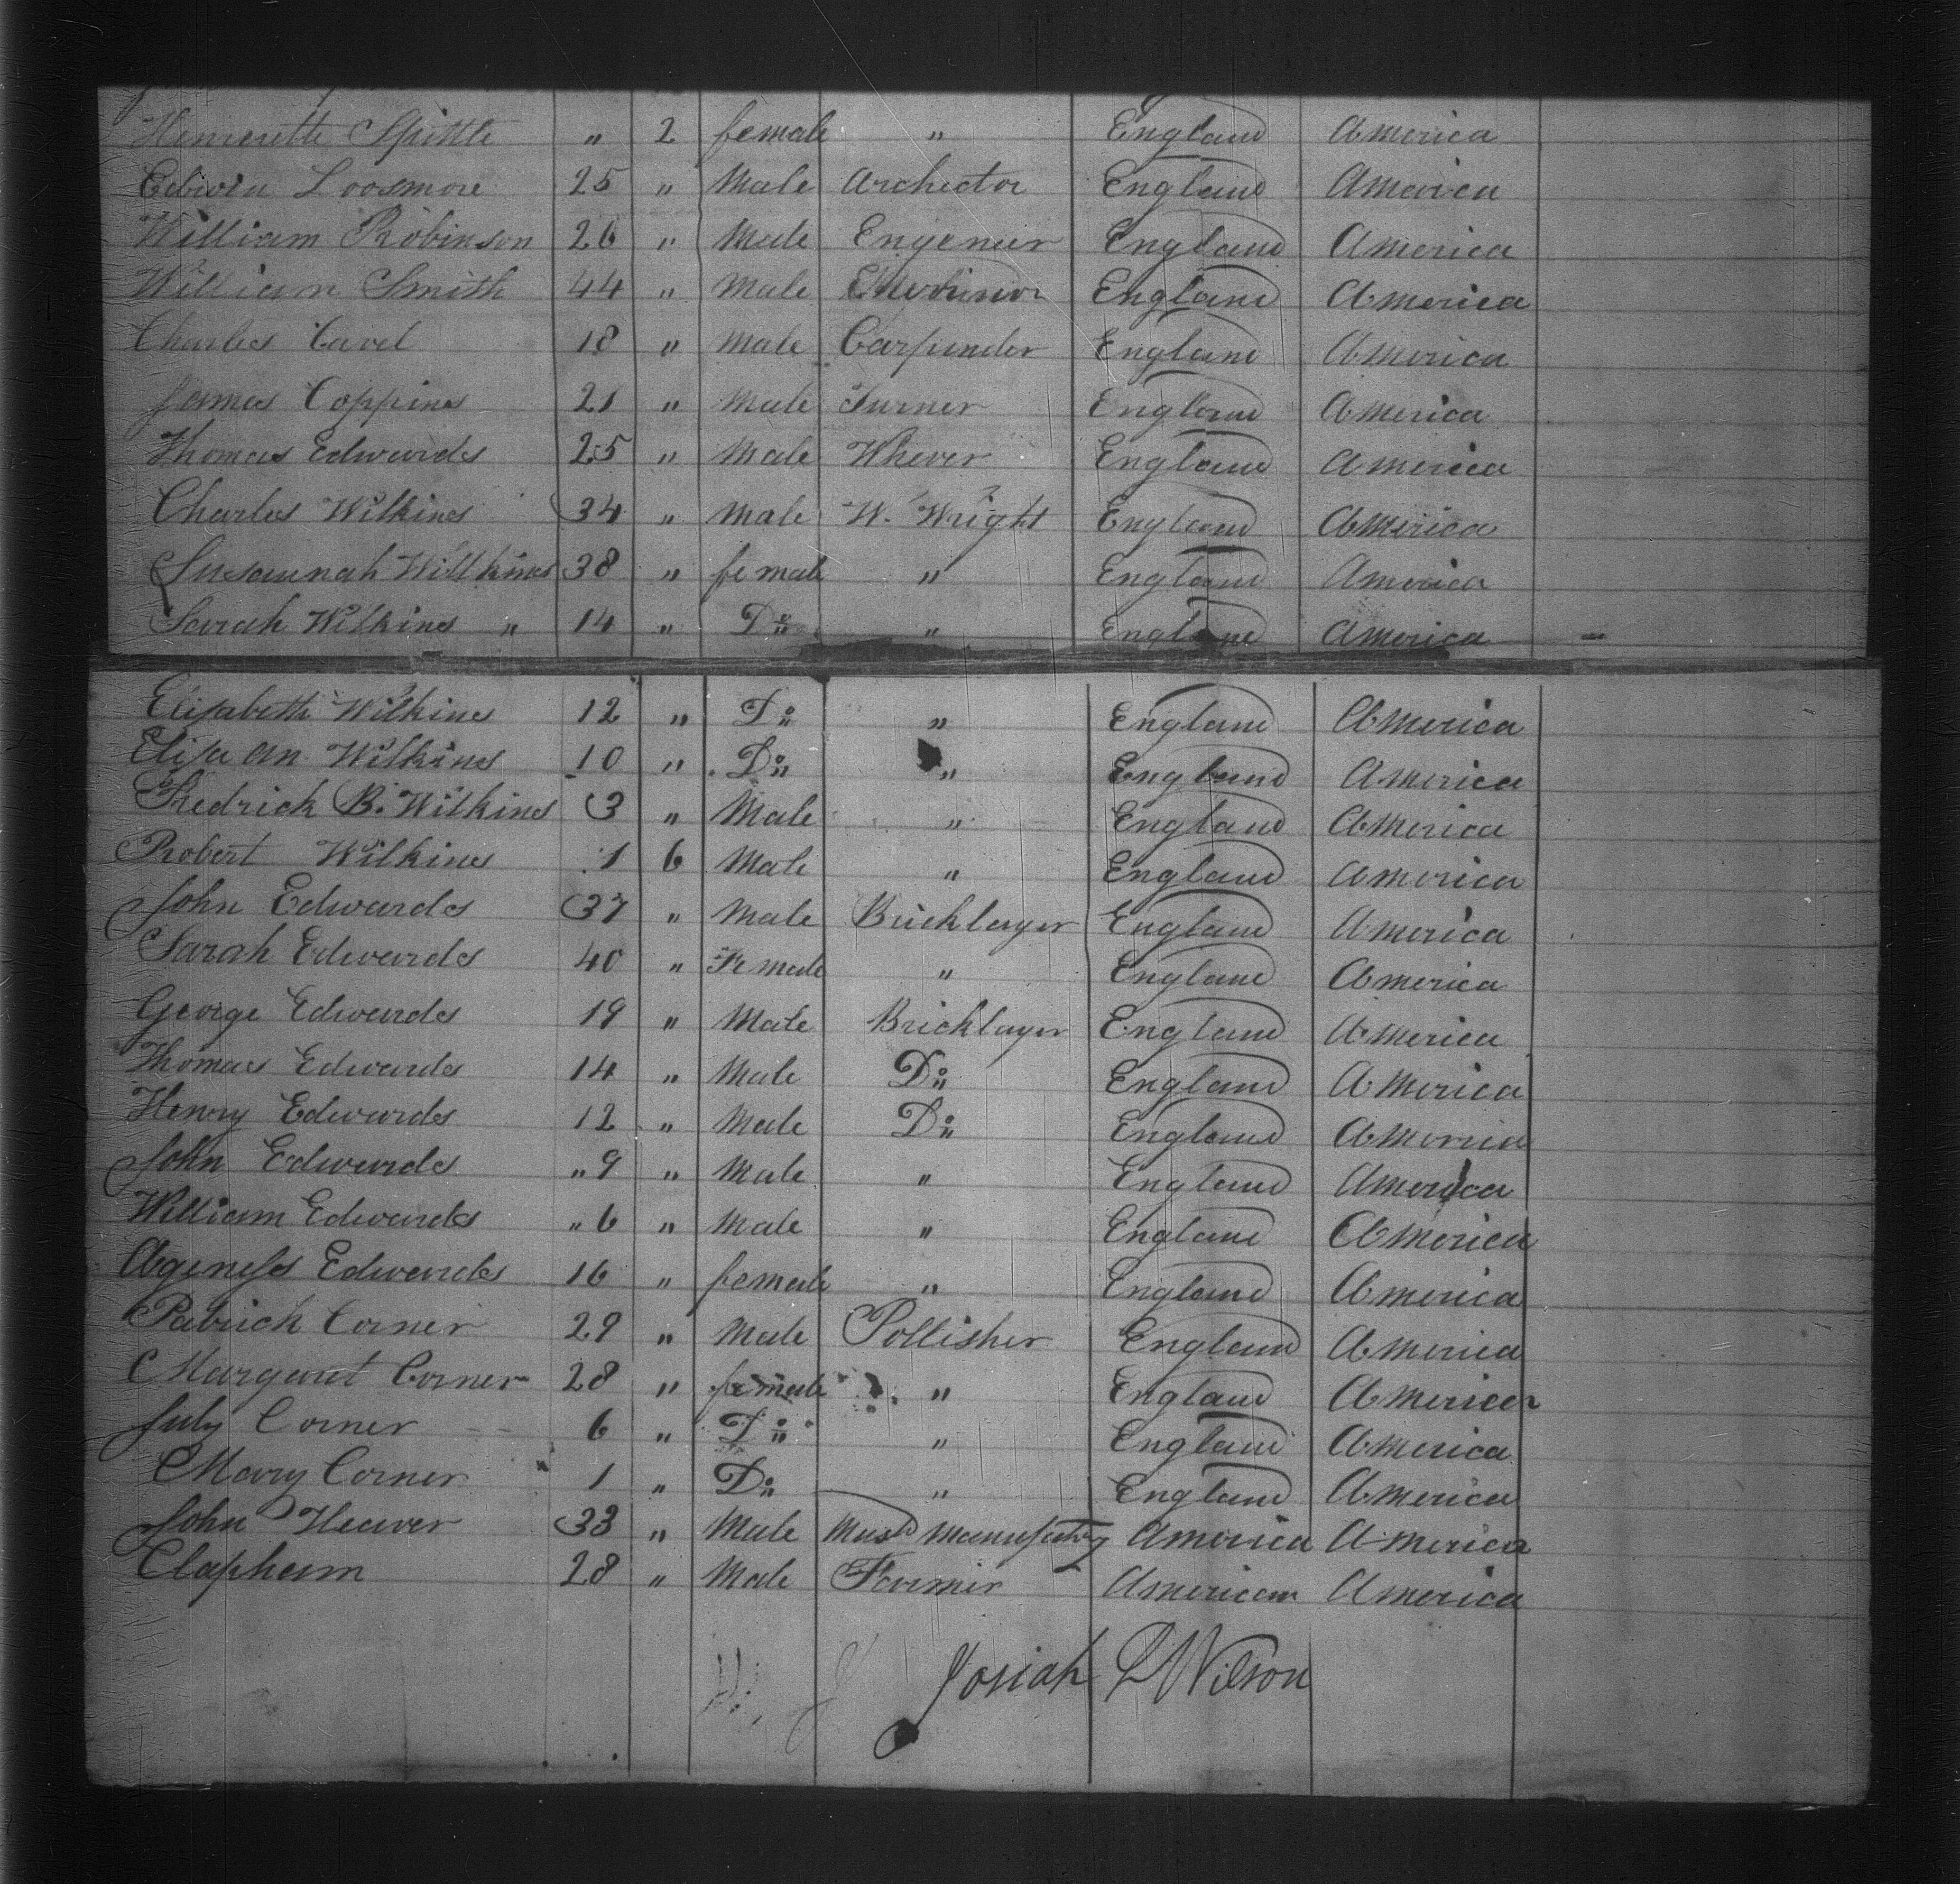 Henerette Spittle " 2 female " England America
Edwin Loosmore 25 " Male Archector England America
William Robinson 26 " Male Engeneer England America
William Smith 44 " Male England America
Charles Cavel 18 " Male Carpinder England America
James Coppins 21 " Male Turner England America
Thomas Edwards 25 " Male Whever England America
Charles Wilkins 34 " Male W. Wright England America
Susannah Willkins 38 " female " England America
Sarah Wilkins " 14 " Do " England America
Elizabeth Wilkins 12 " Do " England America
Eliza an Wilkins 10 " Do " England America
Fredrick B. Wilkins 3 " Male " England America
Robert Wilkins 1 6 Male " England America
John Edwards 37 " Male Bricklayer England America
Sarah Edwards 40 " Female " England America
George Edwards 19 " Male Bricklayer England America
Thomas Edwards 14 " Male Do England America
Henry Edwards 12 " Male Do England America
John Edwards " 9 " Male " England America
William Edwards " 6 " Male " England America
Agenefs Edwards 16 " female " England America
Patrick Corner 29 " Male Pollisher England America
Margaret Corner 28 " female " England America
July Corner 6 " Do " England America
Mary Corner 1 " Do " England America
John Heaver 33 " Male America America
Clapham 28 " Male Farmer American America
Josiah L Wilson